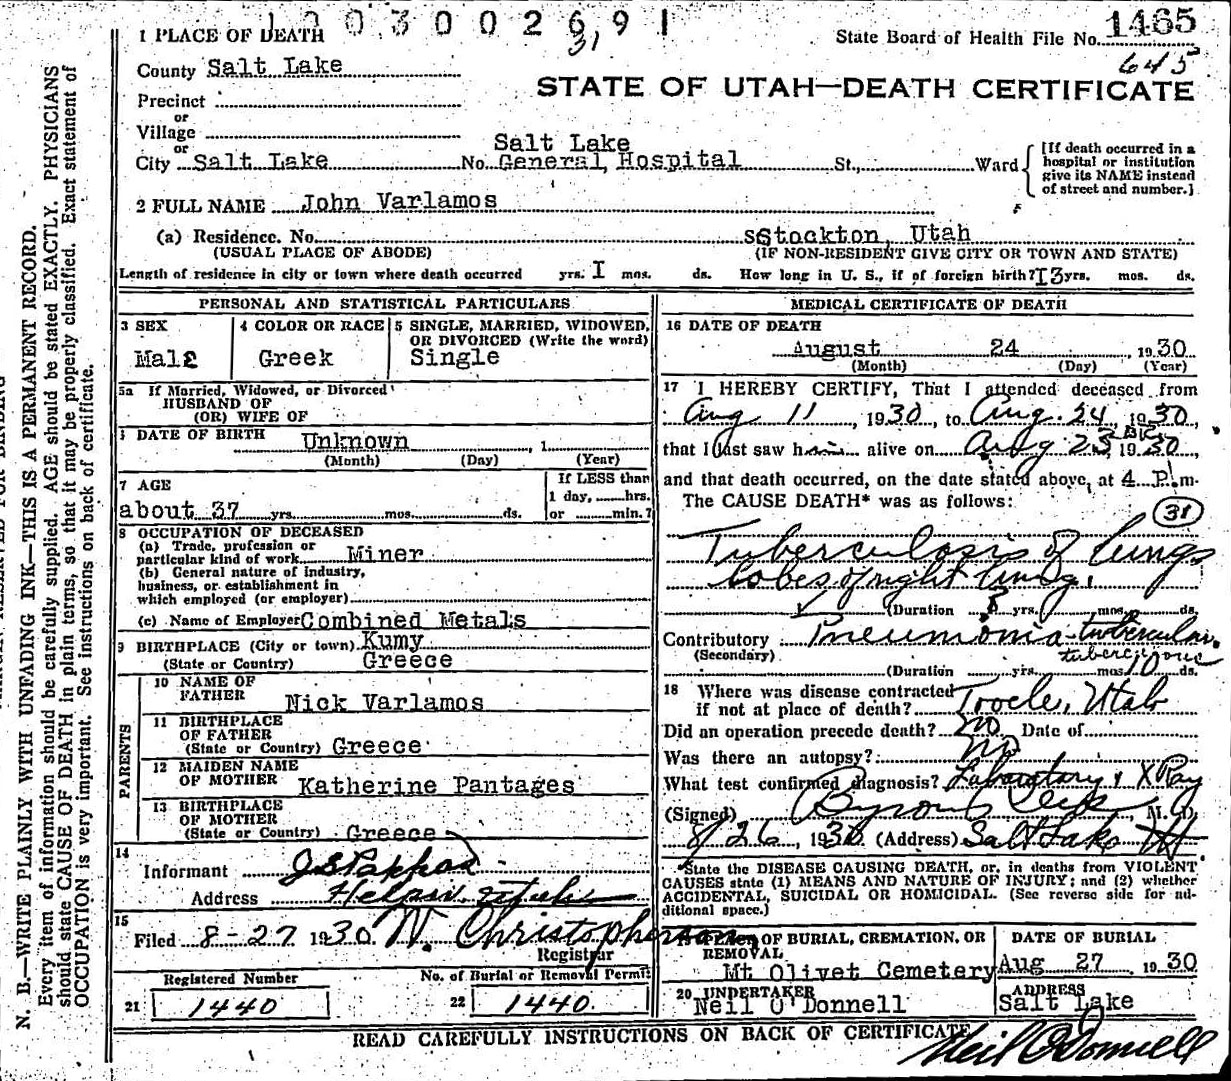 1003002691
31
1 PLACE OF DEATH
State Board of Health File No. 1465
645
County Salt Lake
STATE OF UTAH—DEATH CERTIFICATE
Precinct
or
Village
or
Salt Lake
City Salt Lake No. General Hospital St., Ward
[If death occurred in a hospital or institution give its NAME instead of street and number.]
2 FULL NAME John Varlamos
(a) Residence. No. sStockton, Utah
(USUAL PLACE OF ABODE) (IF NON-RESIDENT GIVE CITY OR TOWN AND STATE)
Length of residence in city or town where death occurred yrs. I mos. ds. How long in U. S., if of foreign birth? I3 yrs. mos. ds.
PERSONAL AND STATISTICAL PARTICULARS
3 SEX
Male
4 COLOR OR RACE
Greek
5 SINGLE, MARRIED, WIDOWED,
OR DIVORCED (Write the word)
Single
5a If Married, Widowed, or Divorced
HUSBAND OF
(OR) WIFE OF
DATE OF BIRTH Unknown , 1
(Month) (Day) (Year)
7 AGE
about 37 yrs. mos. ds.
If LESS than
1 day, hrs.
or min.?
8 OCCUPATION OF DECEASED
(a) Trade, profession or
particular kind of work Miner
(b) General nature of industry,
business, or establishment in
which employed (or employer)
(c) Name of Employer Combined Metals
9 BIRTHPLACE (City or town) Kumy
(State or Country) Greece
PARENTS
10 NAME OF
FATHER Nick Varlamos
11 BIRTHPLACE
OF FATHER
(State or Country) Greece
12 MAIDEN NAME
OF MOTHER Katherine Pantages
13 BIRTHPLACE
OF MOTHER
(State or Country) Greece
14
Informant J S Pappas
Address Helper, Utah
15
Filed 8-27 1930. N. Christopherson
Registrar
Registered Number
21 1440
No. of Burial or Removal Permit
22 1440.
MEDICAL CERTIFICATE OF DEATH
16 DATE OF DEATH
August 24 , 1930
(Month) (Day) (Year)
17 I HEREBY CERTIFY, That I attended deceased from
Aug 11 , 1930, to Aug. 24, 1930,
that I last saw him alive on Aug 23, 1930,
and that death occurred, on the date stated above, at 4 P. m.
The CAUSE DEATH* was as follows:
31
Tuberculosis of lungs
lobes of right lung.
(Duration yrs. mos. ds.
Contributory Pneumonia-tubercular.
(Secondary)
(Duration yrs. mos. 10 ds.
18 Where was disease contracted
if not at place of death? Tooele, Utah
Did an operation precede death? No Date of
Was there an autopsy? No
What test confirmed diagnosis? Laboratory & X Ray
(Signed) , M. D.
8/26, 1930 (Address) Salt Lake Ut
*State the DISEASE CAUSING DEATH, or, in deaths from VIOLENT
CAUSES state (1) MEANS AND NATURE OF INJURY; and (2) whether
ACCIDENTAL, SUICIDAL OR HOMICIDAL. (See reverse side for additional space.)
PLACE OF BURIAL, CREMATION, OR
REMOVAL
Mt Olivet Cemetery
DATE OF BURIAL
Aug 27 , 1930
20 UNDERTAKER
Neil O'Donnell
ADDRESS
Salt Lake
READ CAREFULLY INSTRUCTIONS ON BACK OF CERTIFICATE
Neil O'Donnell
N. B.—WRITE PLAINLY WITH UNFADING INK—THIS IS A PERMANENT RECORD.
Every item of information should be carefully supplied. AGE should be stated EXACTLY. PHYSICIANS
should state CAUSE OF DEATH in plain terms, so that it may be properly classified. Exact statement of
OCCUPATION is very important. See instructions on back of certificate.